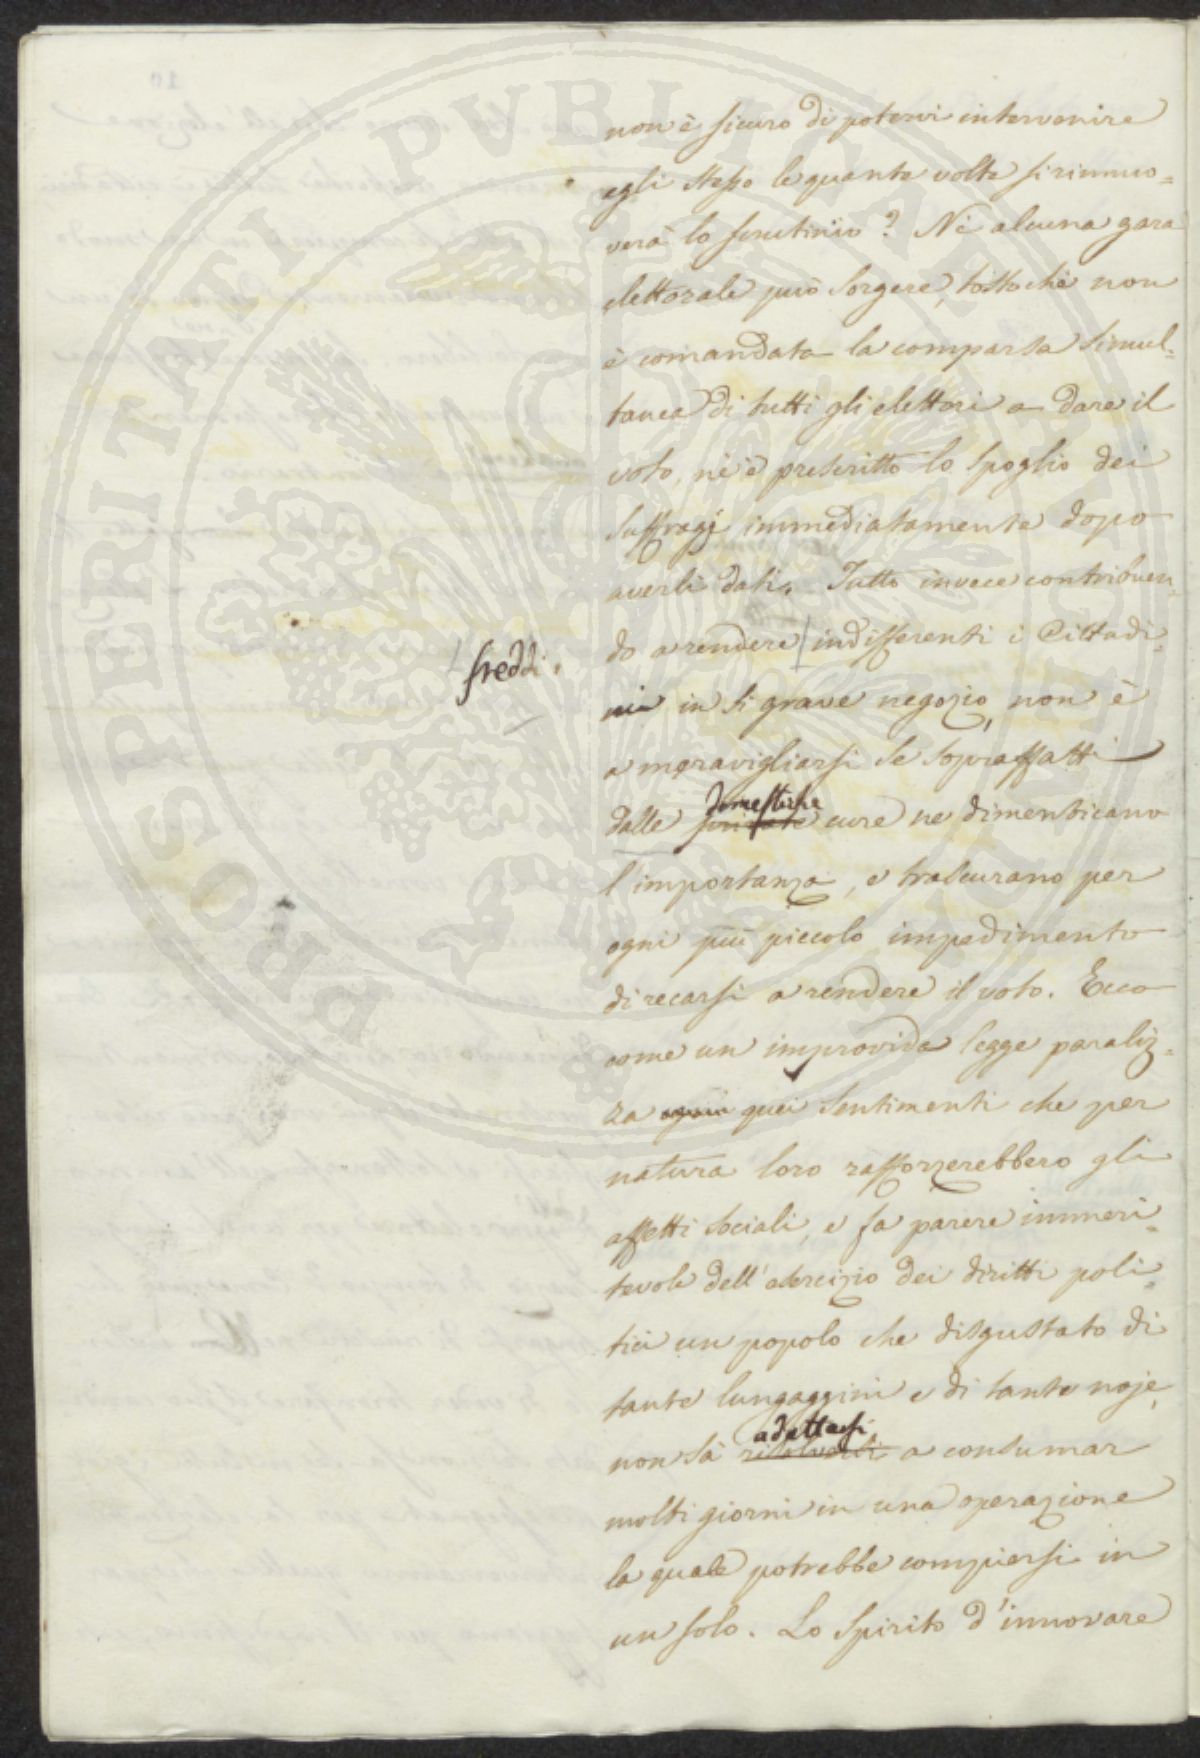 non è sicuro di potervi intervenire
egli stesso le quante volte si rinnuo=
verà lo scrutinio? Nè alcuna gara
elettorale può sorgere, tostochè non
è comandata la comparsa simul=
tanea di tutti gli elettori a dare il
voto, nè è prescritto lo spoglio dei
suffragj immediatamente dopo
averli dati. Tutto invece contribuen
do a rendere indifferenti i Cittadi=
freddi
ni in sì grave negozio, non è
a meravigliarsi se sopraffatti
domestiche
dalle private cure ne dimenticano
l'importanza, e trascurano per
ogni più piccolo impedimento
di recarsi a rendere il voto. Ecco
come un improvida legge paraliz=
za quei sentimenti che per
natura loro rafforzerebbero gli
affetti sociali, e fa parere immeri=
tevole dell'esercizio dei diritti poli=
tici un popolo che disgustato di
tante lungaggini e di tante noje,
adattarsi
non sà risolversi a consumar
molti giorni in una operazione
la quale potrebbe compiersi in
un solo. Lo spirito d'innovare
PROSPERITATI PVBLICAE AVGENDAE